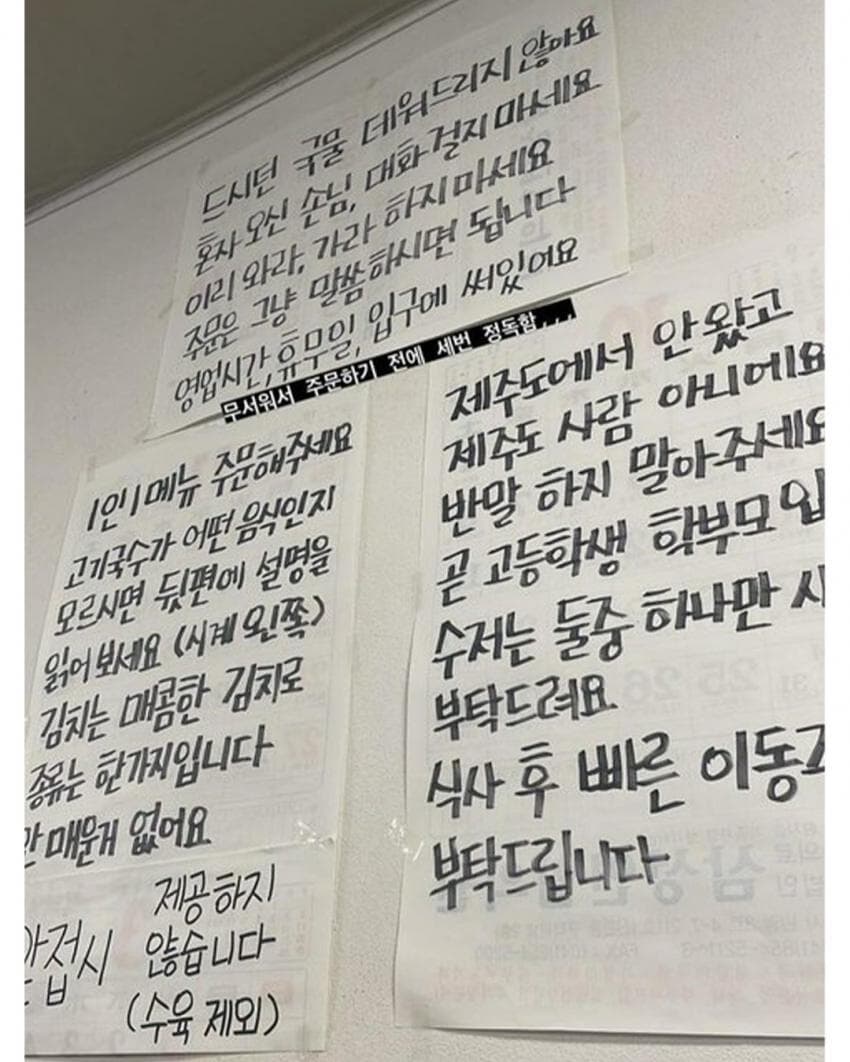 드시던 국물 데워드리지 않아요
혼자 오신 손님, 대화 걸지 마세요
이리 와라, 가라 하지마세요
주문은 그냥 말씀하시면 됩니다
영업시간, 휴무일, 입구에 써있어요
무서워서 주문하기 전에 세번 정독함...
1인 1메뉴 주문해주세요
고기국수가 어떤 음식인지
모르시면 뒷편에 설명을
읽어 보세요 (시계 왼쪽)
김치는 매콤한 김치로
종류는 한가지입니다
안 매운게 없어요
제공하지
앞접시 않습니다
(수육 제외)
제주도에서 안 왔고
제주도 사람 아니에요
반말 하지 말아주세요
곧 고등학생 학부모입
수저는 둘중 하나만 사
부탁드려요
식사 후 빠른 이동
부탁드립니다
25 26
31